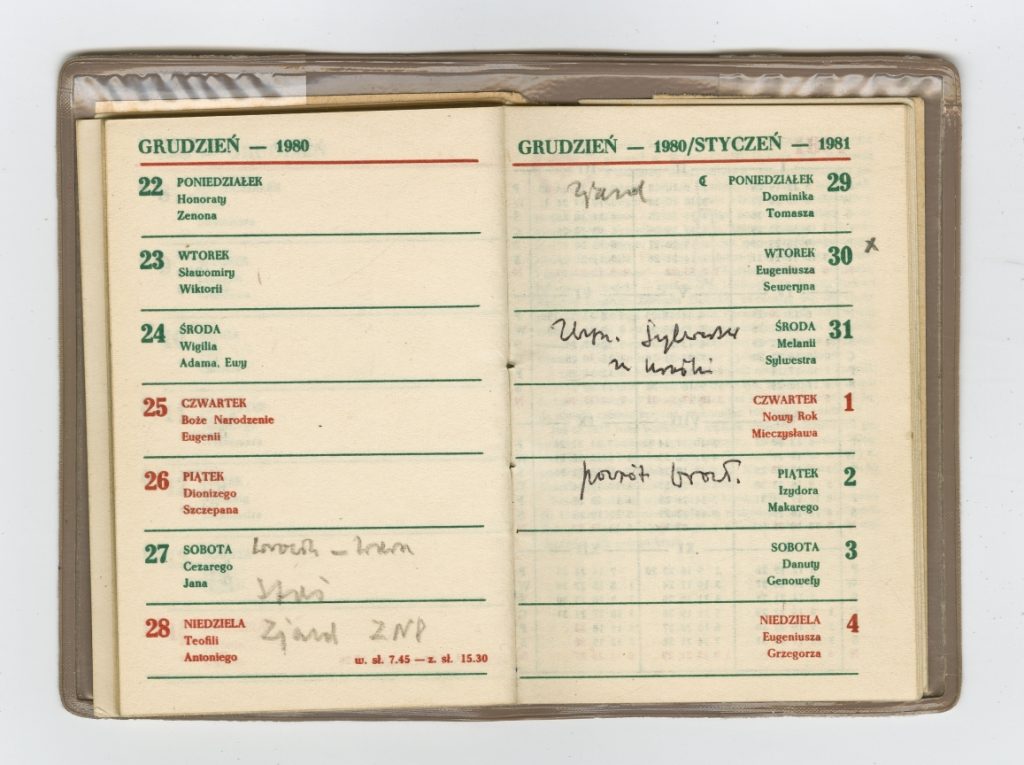 GRUDZIEŃ — 1980
22 PONIEDZIAŁEK
Honoraty
Zenona
23 WTOREK
Sławomiry
Wiktorii
24 ŚRODA
Wigilia
Adama, Ewy
25 CZWARTEK
Boże Narodzenie
Eugenii
26 PIĄTEK
Dionizego
Szczepana
27 SOBOTA
Cezarego
Jana
28 NIEDZIELA
Zjazd ZNP
Teofili
Antoniego
w. sł. 7.45 — z. sł. 15.30
GRUDZIEŃ — 1980/STYCZEŃ — 1981
Zjazd
☾ PONIEDZIAŁEK 29
Dominika
Tomasza
WTOREK 30 x
Eugeniusza
Seweryna
ŚRODA 31
Sylwester
Melanii
Sylwestra
CZWARTEK 1
Nowy Rok
Mieczysława
powrót Wrocł.
PIĄTEK 2
Izydora
Makarego
SOBOTA 3
Danuty
Genowefy
NIEDZIELA 4
Eugeniusza
Grzegorza